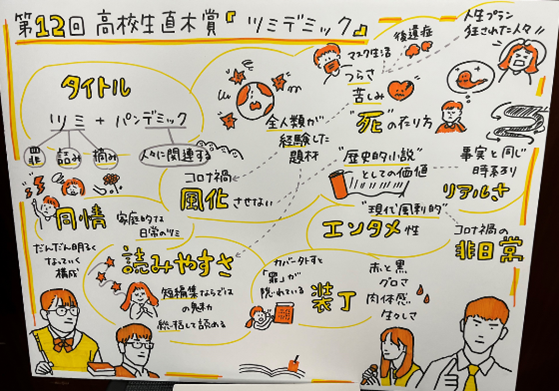 第12回 高校生直木賞『ツミデミック』
タイトル
ツミ + パンデミック
罪 詰み 摘み
人々に関連する
同情
家庭的な
日常のツミ
だんだん明るく
なっていく
構成
コロナ禍
風化させない
全人類が
経験した
題材
マスク生活
つらさ
苦しみ
後遺症
人生プラン
狂わされた人々!!
"死"の在り方
"歴史的小説"
としての価値
事実と同じ
時系列
リアルさ
"現代風刺的"
エンタメ性
コロナ禍の
非日常
読みやすさ
短編集ならでは
の魅力
総括して読める
カバー外すと
「罪」が
隠れている
装丁
赤と黒
グロさ
肉体感
生々しさ